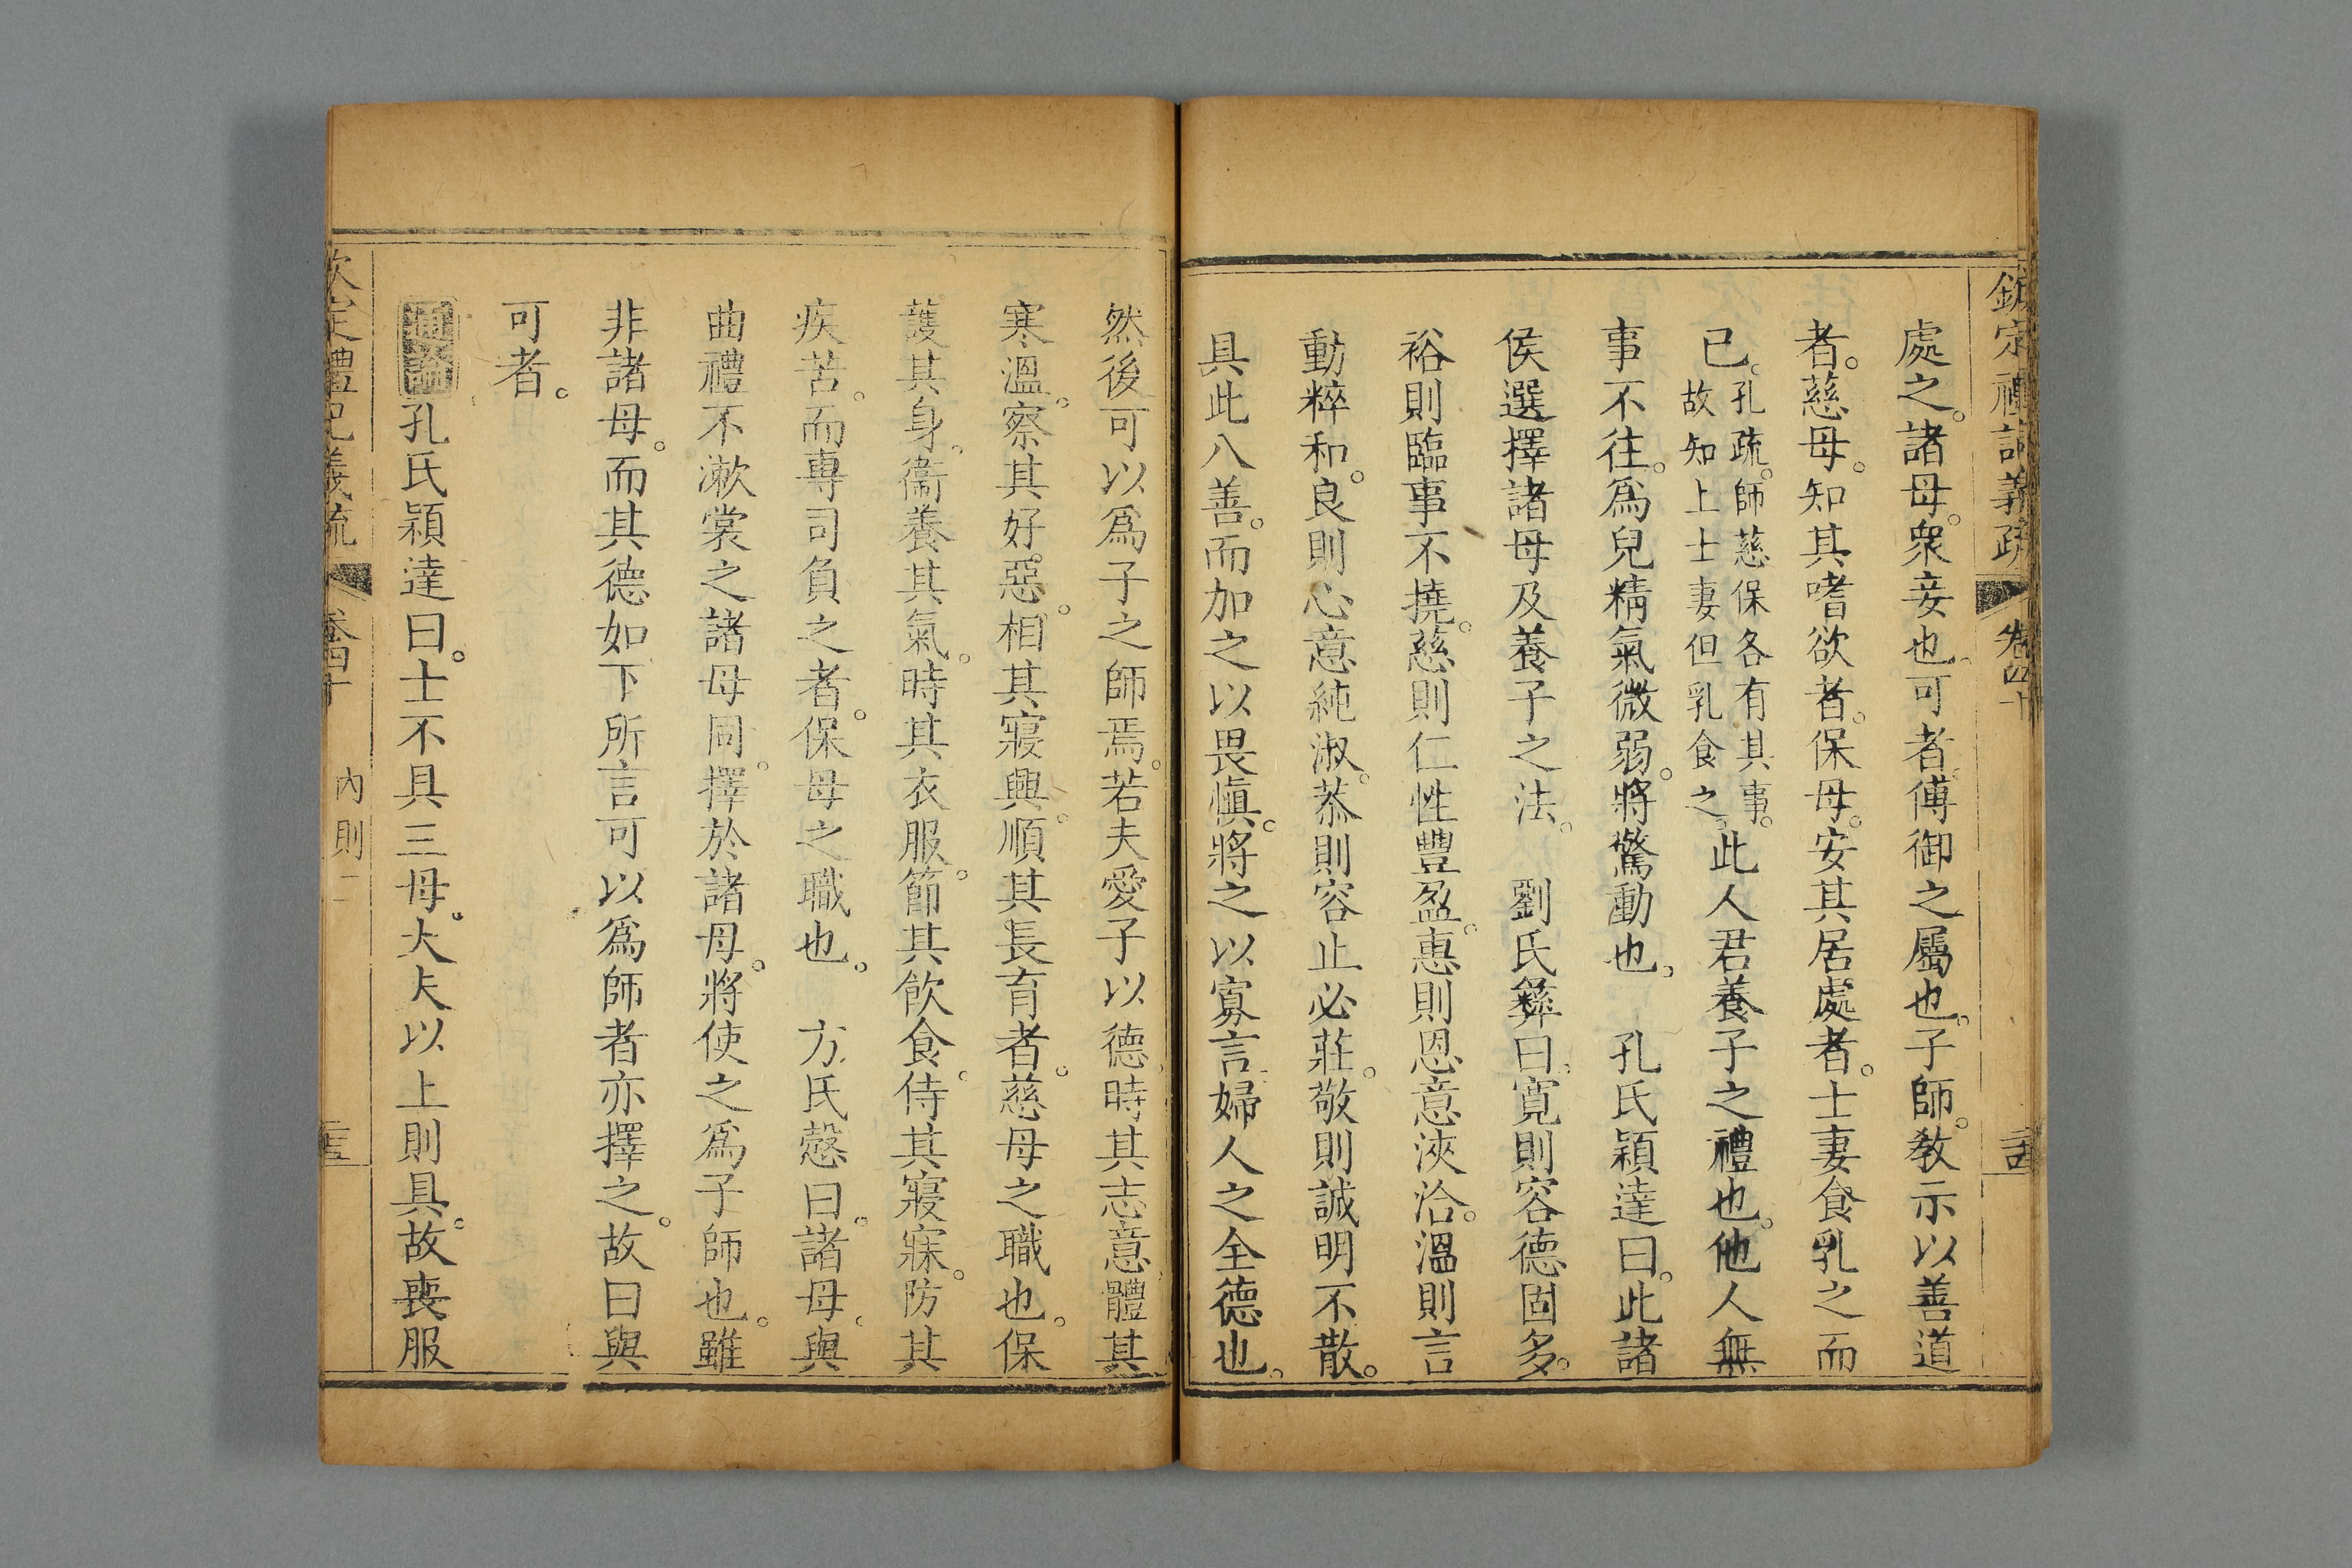 欽定禮記義疏 卷四十
處之。諸母。衆妾也。可者。傅御之屬也。子師。敎示以善道
者。慈母。知其嗜欲者。保母。安其居處者。士妻食乳之而
已。孔疏。師慈保各有其事。故知上士妻但乳食之。此人君養子之禮也。他人無
事不往。爲兒精氣微弱。將驚動也。 孔氏穎達曰。此諸
侯選擇諸母及養子之法。 劉氏彝曰。寛則容德固多。
裕則臨事不撓。慈則仁性豐盈。惠則恩意浹洽。溫則言
動粹和。良則心意純淑。恭則容止必莊。敬則誠明不散。
具此八善。而加之以畏愼。將之以寡言。婦人之全德也。
然後可以爲子之師焉。若夫愛子以德。時其志意。體其
寒溫。察其好惡。相其寢興。順其長育者。慈母之職也。保
護其身。衞養其氣。時其衣服。節其飮食。侍其寢寐。防其
疾苦。而專司負之者。保母之職也。 方氏慤曰。諸母。與
曲禮不漱裳之諸母同。擇於諸母。將使之爲子師也。雖
非諸母。而其德如下所言可以爲師者亦擇之。故曰與
可者。
通論孔氏穎達曰。士不具三母。大夫以上則具。故喪服
欽定禮記義疏 卷四十 內則二